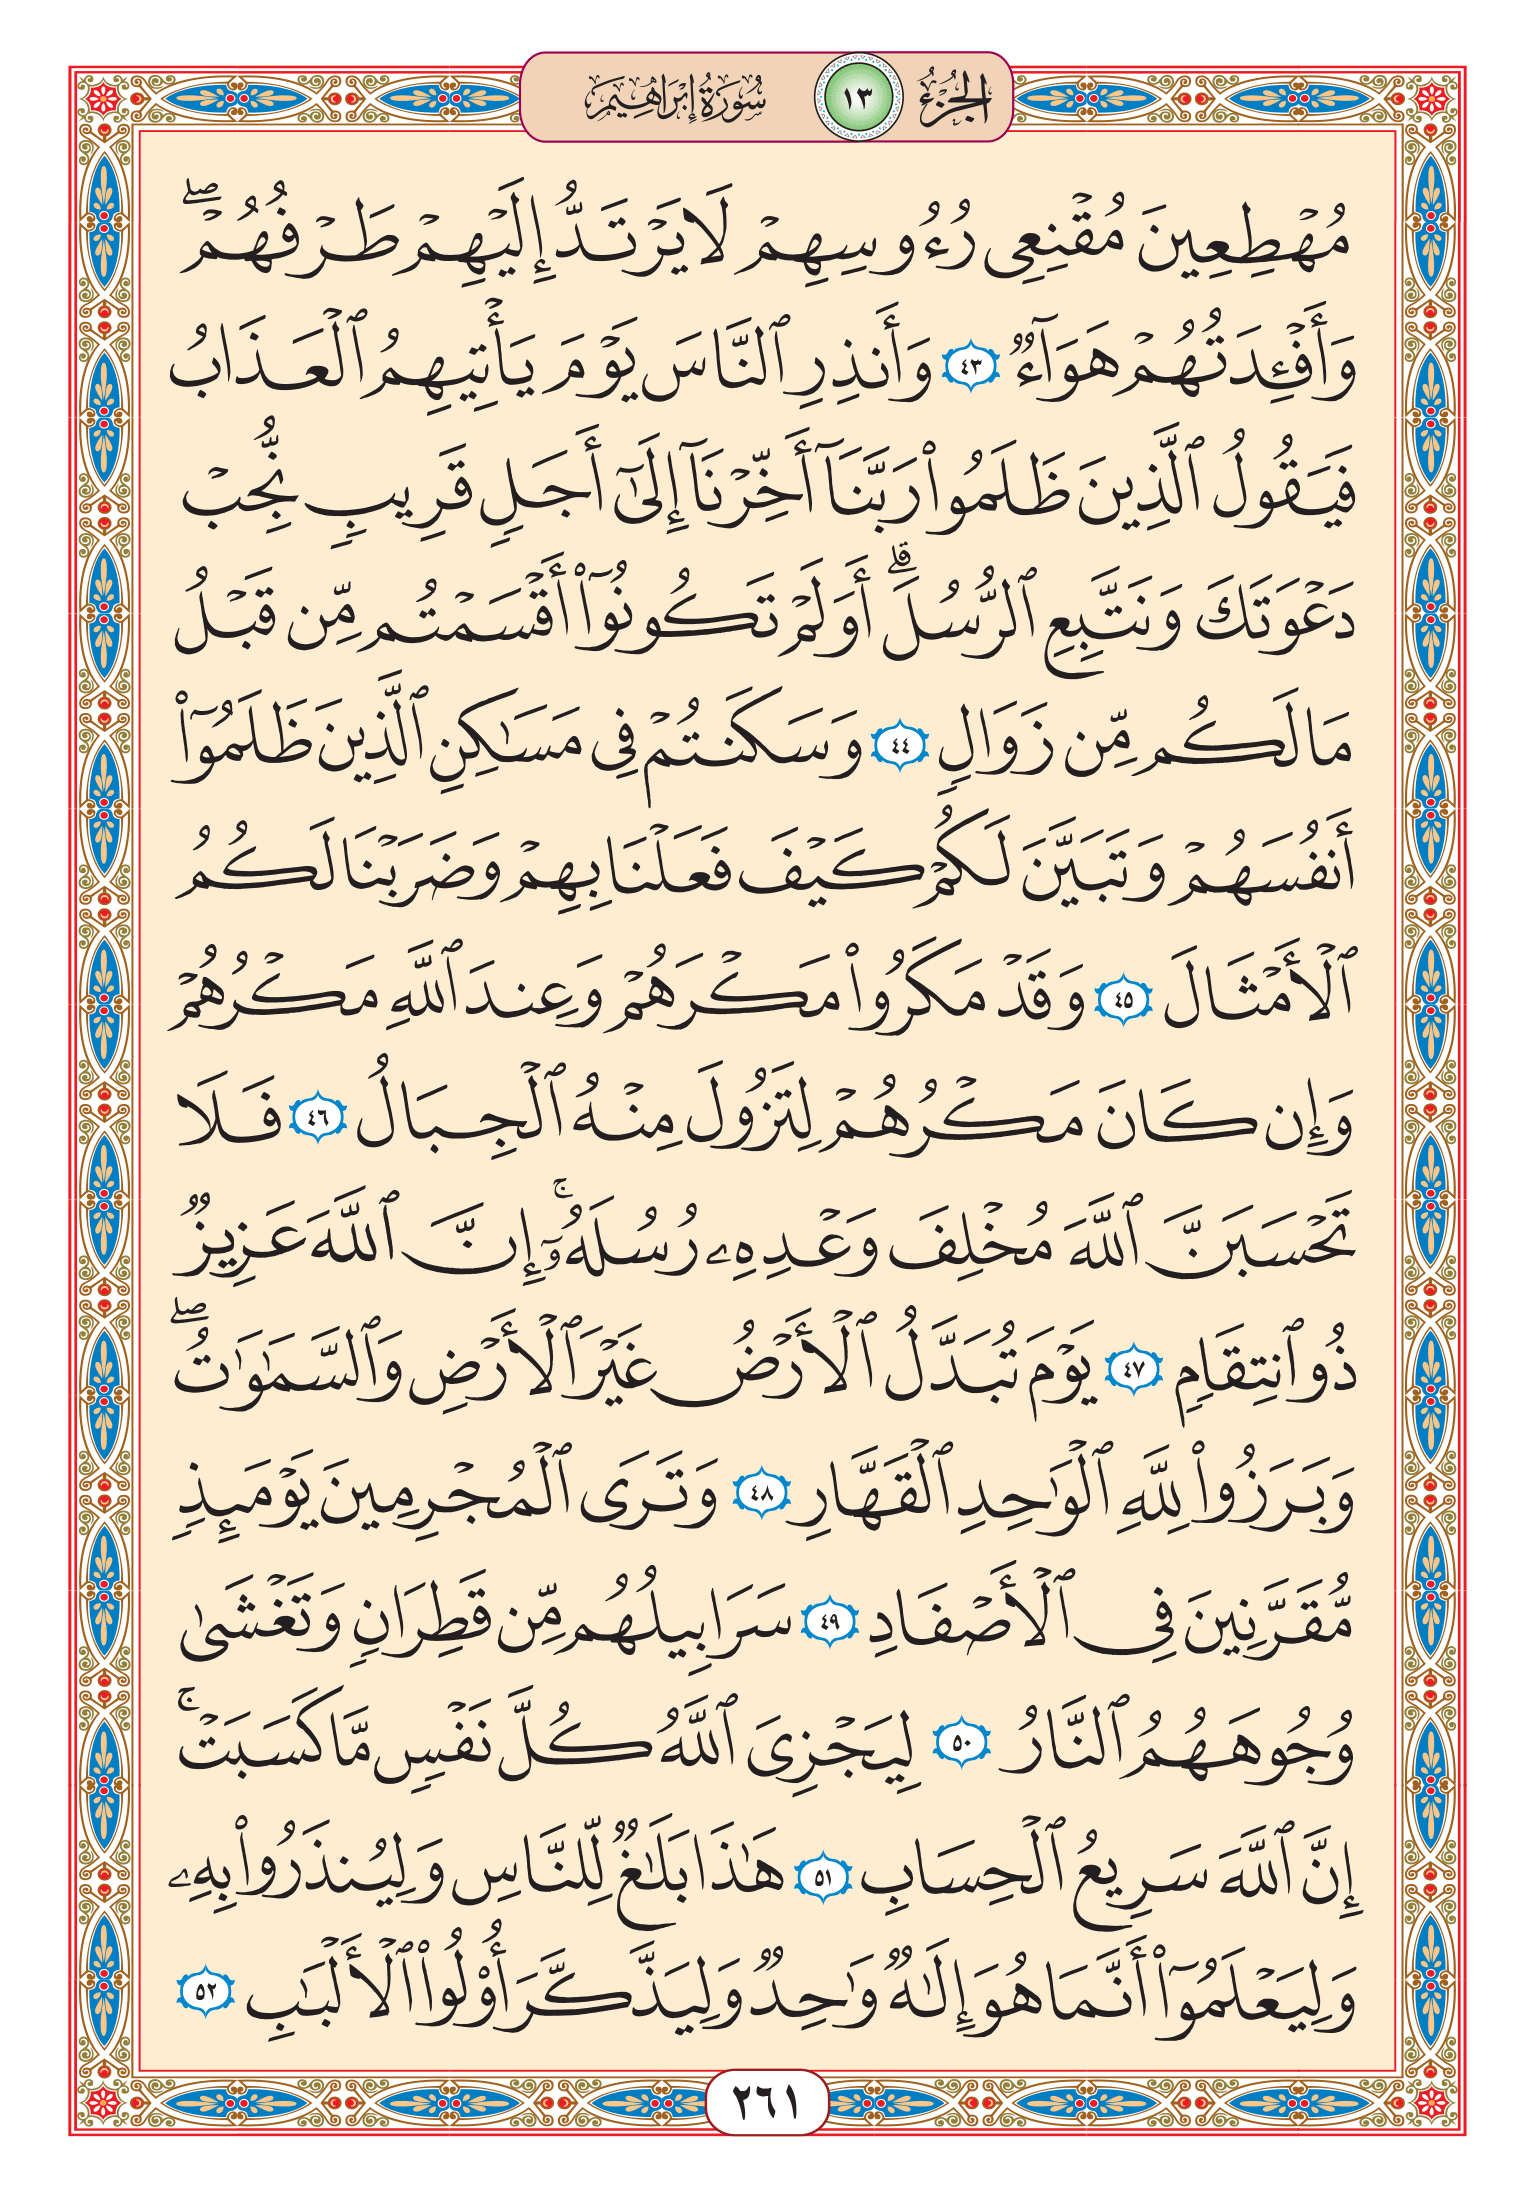 الجزء ١٣ سورة إبراهيم
مُهْطِعِينَ مُقْنِعِى رُءُوسِهِمْ لَا يَرْتَدُّ إِلَيْهِمْ طَرْفُهُمْ ۖ
وَأَفْـِٔدَتُهُمْ هَوَآءٌ ٤٣ وَأَنذِرِ ٱلنَّاسَ يَوْمَ يَأْتِيهِمُ ٱلْعَذَابُ
فَيَقُولُ ٱلَّذِينَ ظَلَمُوا۟ رَبَّنَآ أَخِّرْنَآ إِلَىٰٓ أَجَلٍ قَرِيبٍ نُّجِبْ
دَعْوَتَكَ وَنَتَّبِعِ ٱلرُّسُلَ ۗ أَوَلَمْ تَكُونُوٓا۟ أَقْسَمْتُم مِّن قَبْلُ
مَا لَكُم مِّن زَوَالٍ ٤٤ وَسَكَنتُمْ فِى مَسَـٰكِنِ ٱلَّذِينَ ظَلَمُوٓا۟
أَنفُسَهُمْ وَتَبَيَّنَ لَكُمْ كَيْفَ فَعَلْنَا بِهِمْ وَضَرَبْنَا لَكُمُ
ٱلْأَمْثَالَ ٤٥ وَقَدْ مَكَرُوا۟ مَكْرَهُمْ وَعِندَ ٱللَّهِ مَكْرُهُمْ
وَإِن كَانَ مَكْرُهُمْ لِتَزُولَ مِنْهُ ٱلْجِبَالُ ٤٦ فَلَا
تَحْسَبَنَّ ٱللَّهَ مُخْلِفَ وَعْدِهِۦ رُسُلَهُۥٓ ۚ إِنَّ ٱللَّهَ عَزِيزٌ
ذُو ٱنتِقَامٍ ٤٧ يَوْمَ تُبَدَّلُ ٱلْأَرْضُ غَيْرَ ٱلْأَرْضِ وَٱلسَّمَـٰوَٰتُ ۖ
وَبَرَزُوا۟ لِلَّهِ ٱلْوَٰحِدِ ٱلْقَهَّارِ ٤٨ وَتَرَى ٱلْمُجْرِمِينَ يَوْمَئِذٍ
مُّقَرَّنِينَ فِى ٱلْأَصْفَادِ ٤٩ سَرَابِيلُهُم مِّن قَطِرَانٍ وَتَغْشَىٰ
وُجُوهَهُمُ ٱلنَّارُ ٥٠ لِيَجْزِىَ ٱللَّهُ كُلَّ نَفْسٍ مَّا كَسَبَتْ ۚ
إِنَّ ٱللَّهَ سَرِيعُ ٱلْحِسَابِ ٥١ هَـٰذَا بَلَـٰغٌ لِّلنَّاسِ وَلِيُنذَرُوا۟ بِهِۦ
وَلِيَعْلَمُوٓا۟ أَنَّمَا هُوَ إِلَـٰهٌ وَٰحِدٌ وَلِيَذَّكَّرَ أُو۟لُوا۟ ٱلْأَلْبَـٰبِ ٥٢
٢٦١